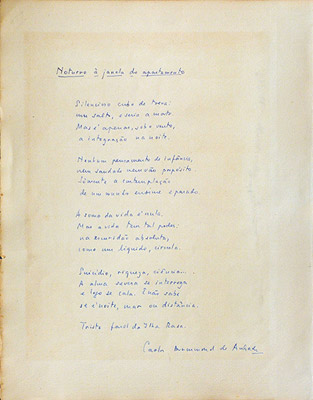 Noturno à janela do apartamento
Silencioso cubo de treva:
um salto, e seria a morte.
Mas é apenas, sob o vento,
a integração na noite.
Nenhum pensamento de infância,
nem saudade nem vão propósito.
Sòmente a contemplação
de um mundo enorme e parado.
A soma da vida é nula.
Mas a vida tem tal poder:
na escuridão absoluta,
como um líquido, circula.
Suicídio, riqueza, ciência...
A alma severa se interroga
e logo se cala. E não sabe
se é noite, mar ou distância.
Triste farol da Ilha Rasa.
Carlos Drummond de Andrade